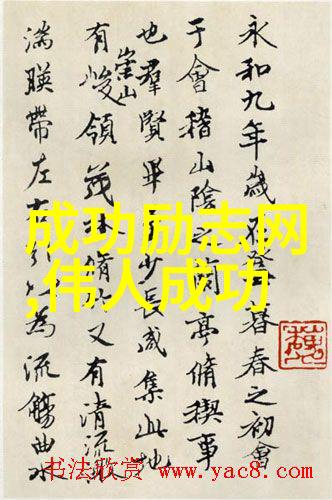 永和九年歲暮春之初會
于會稽山陰之蘭亭脩禊事
也羣賢畢至少長咸集此地
有崇山峻領茂林脩竹又有清流激
湍暎帶左右引以為流觴曲水
成功励志网
,伟人成功
书法欣赏 www.yac8.com